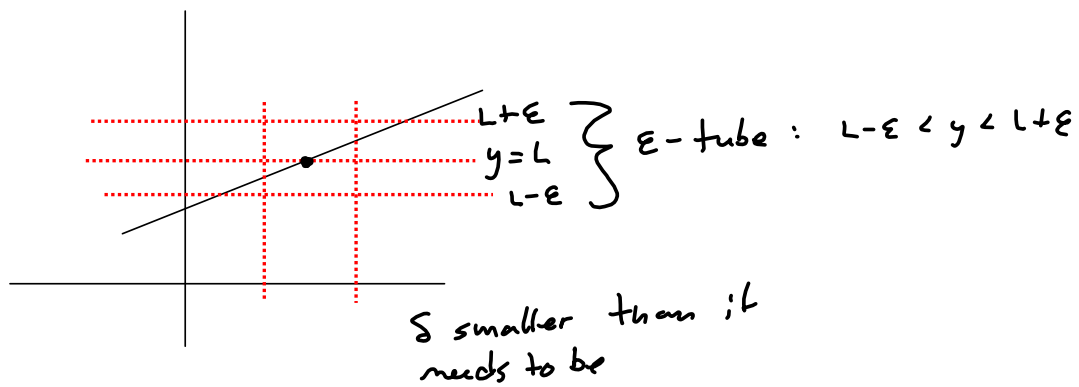 L+ε
y=L
L-ε
ε-tube: L-ε < y < L+ε
δ smaller than it
needs to be